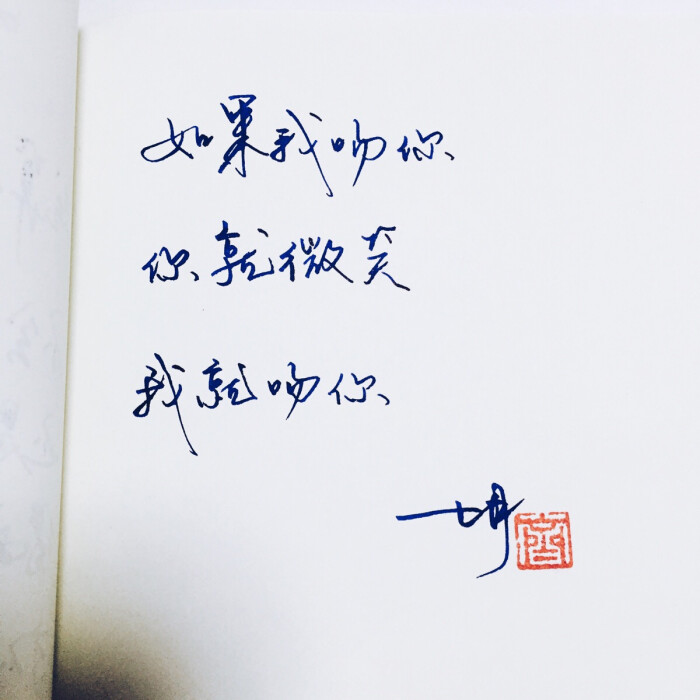 如果我吻你
你就微笑
我就吻你